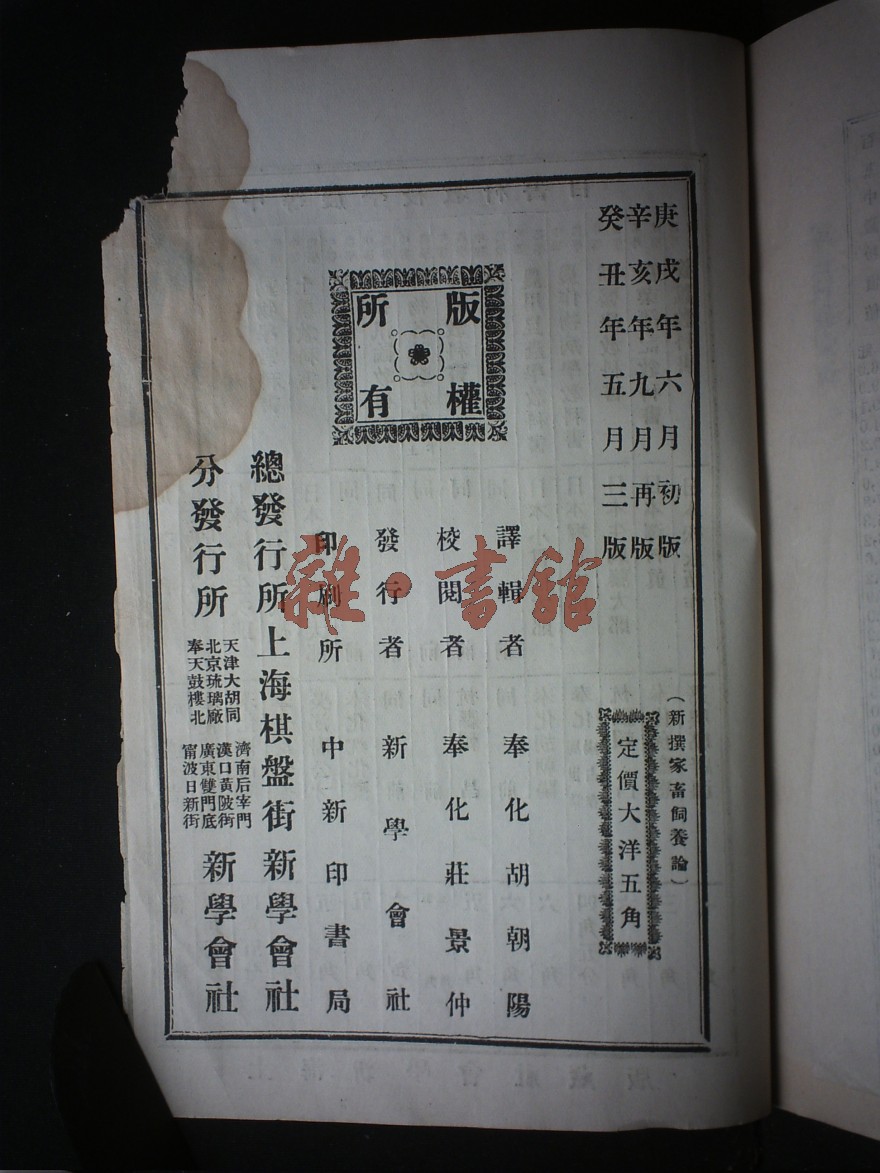 庚戌年六月初版
辛亥年九月再版
癸丑年五月三版
（新撰家畜飼養論）
定價大洋五角
版權
所有
譯輯者 奉化胡朝陽
校閱者 奉化莊景仲
發行者 新學會社
印刷所 中新印書局
總發行所 上海棋盤街 新學會社
分發行所
天津大胡同
北京琉璃廠
奉天鼓樓北
濟南后宰門
漢口黃陂街
廣東雙門底
甯波日新街
新學會社
雜·書館